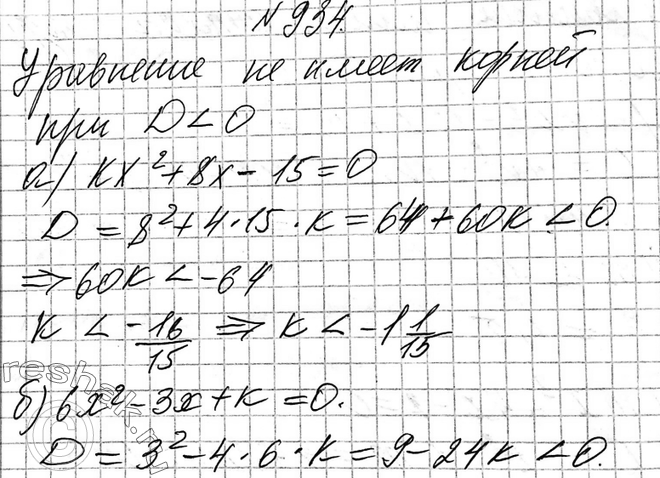 № 934.
Уравнение не имеет корней
при D < 0
а) kx² + 8x - 15 = 0
D = 8² + 4 · 15 · k = 64 + 60k < 0.
⇒ 60k < -64
k < -16/15 ⇒ k < -1 1/15
б) 6x² - 3x + k = 0.
D = 3² - 4 · 6 · k = 9 - 24k < 0.
reshak.ru